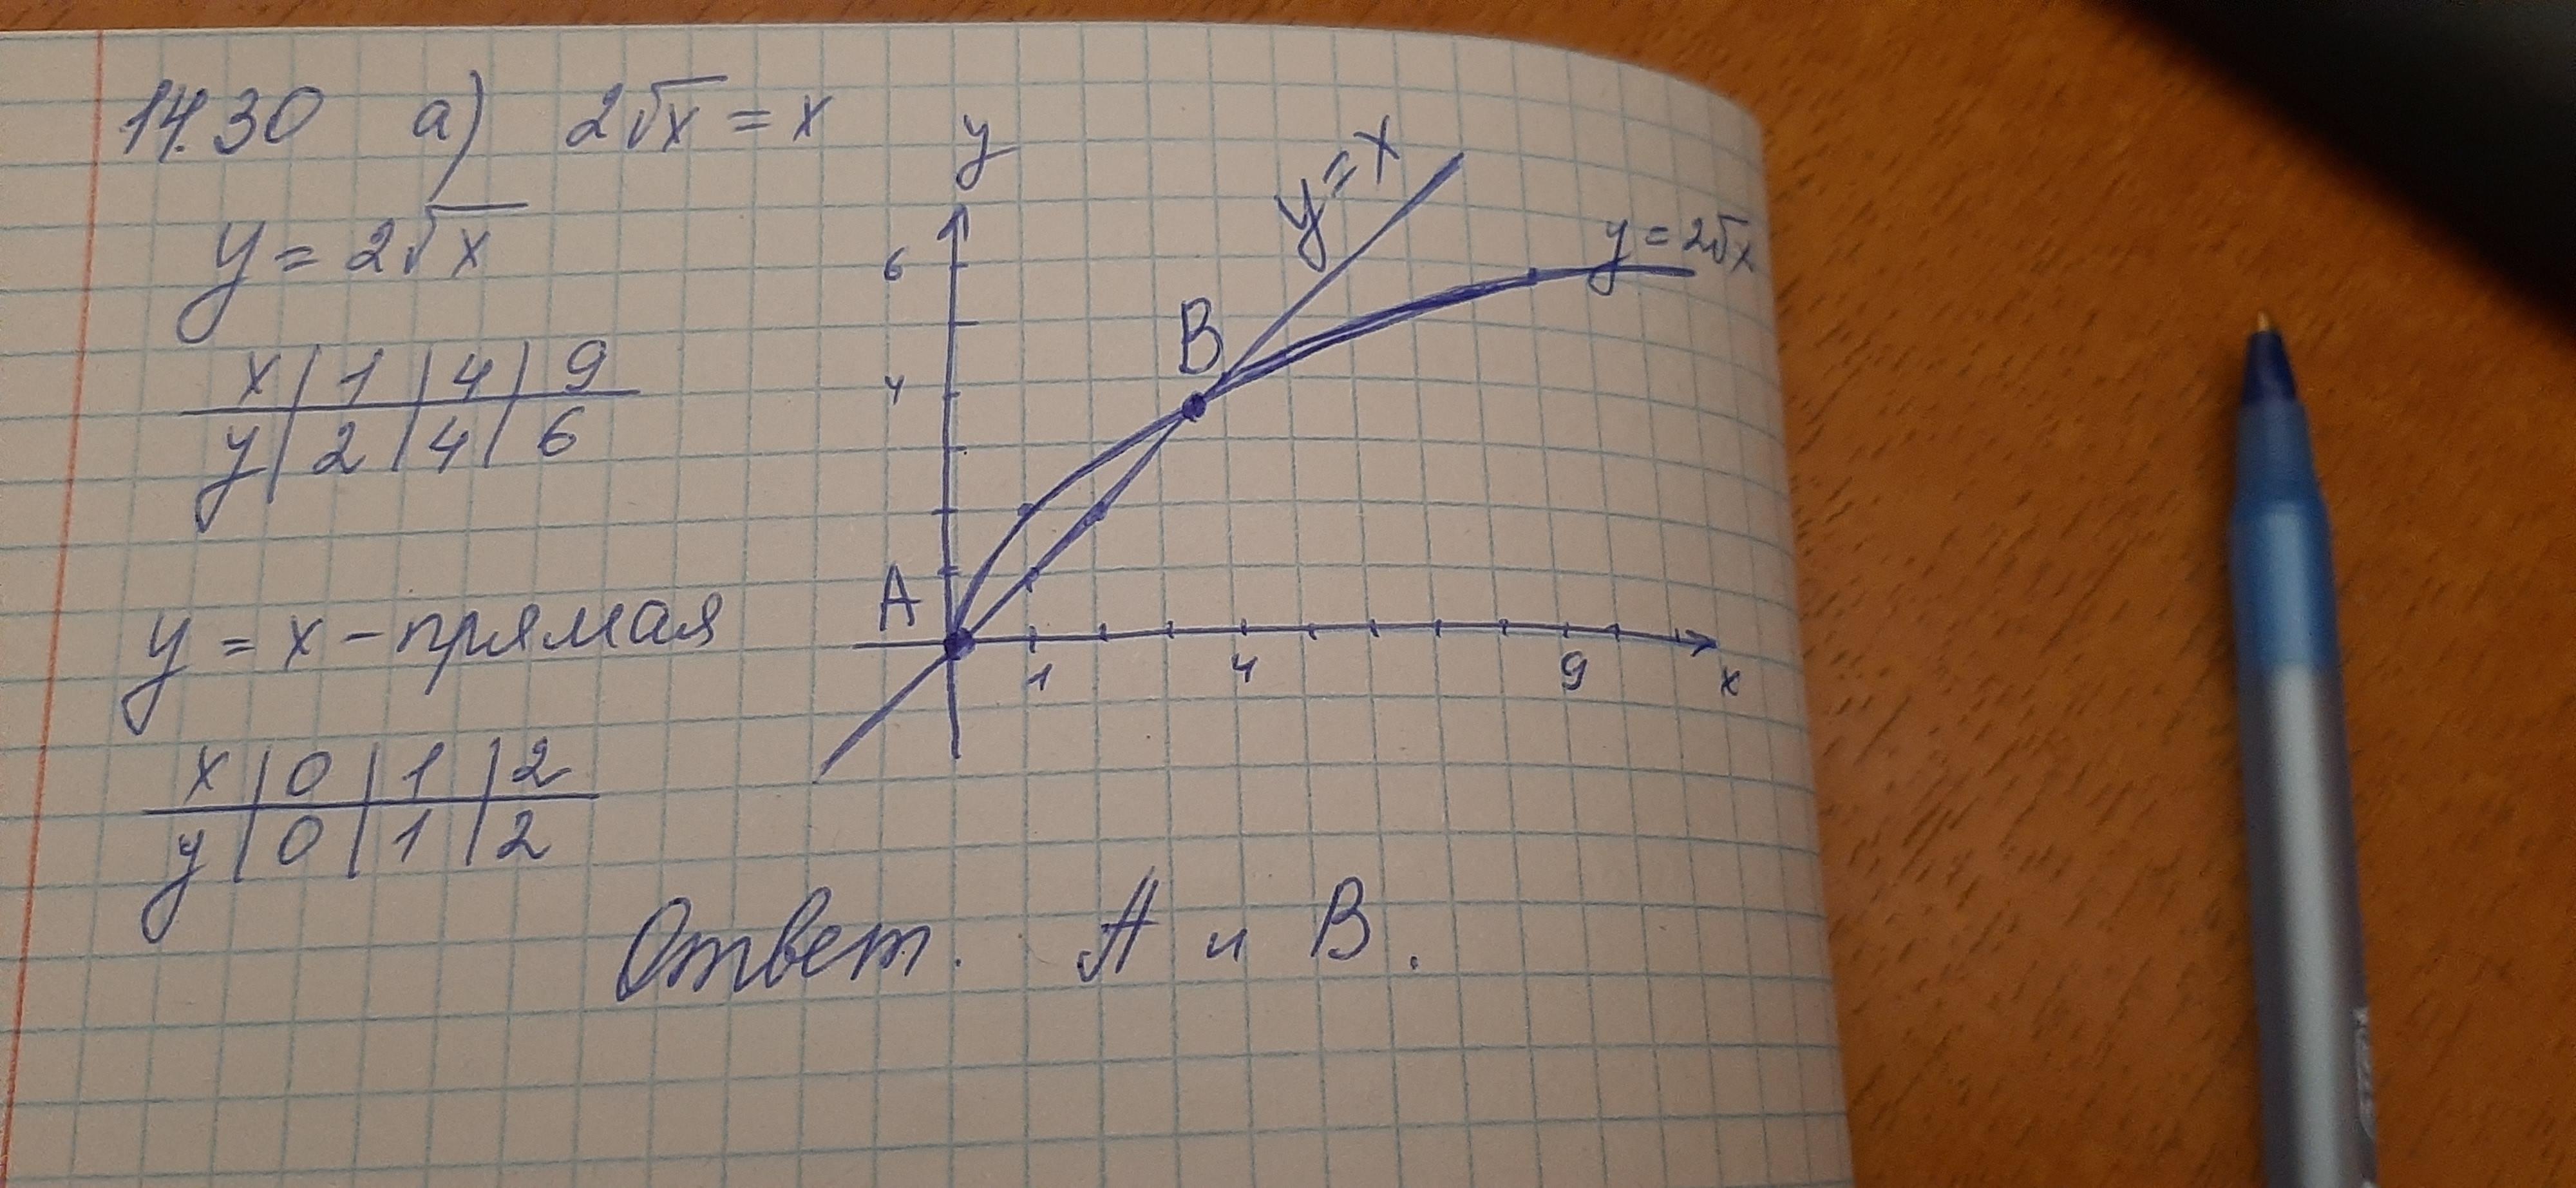 14.30 а) 2√x = x
y = 2√x
x | 1 | 4 | 9
y | 2 | 4 | 6
y = x - прямая
x | 0 | 1 | 2
y | 0 | 1 | 2
y
6
4
A
B
y = x
y = 2√x
1 4 9 x
Ответ. А и В.